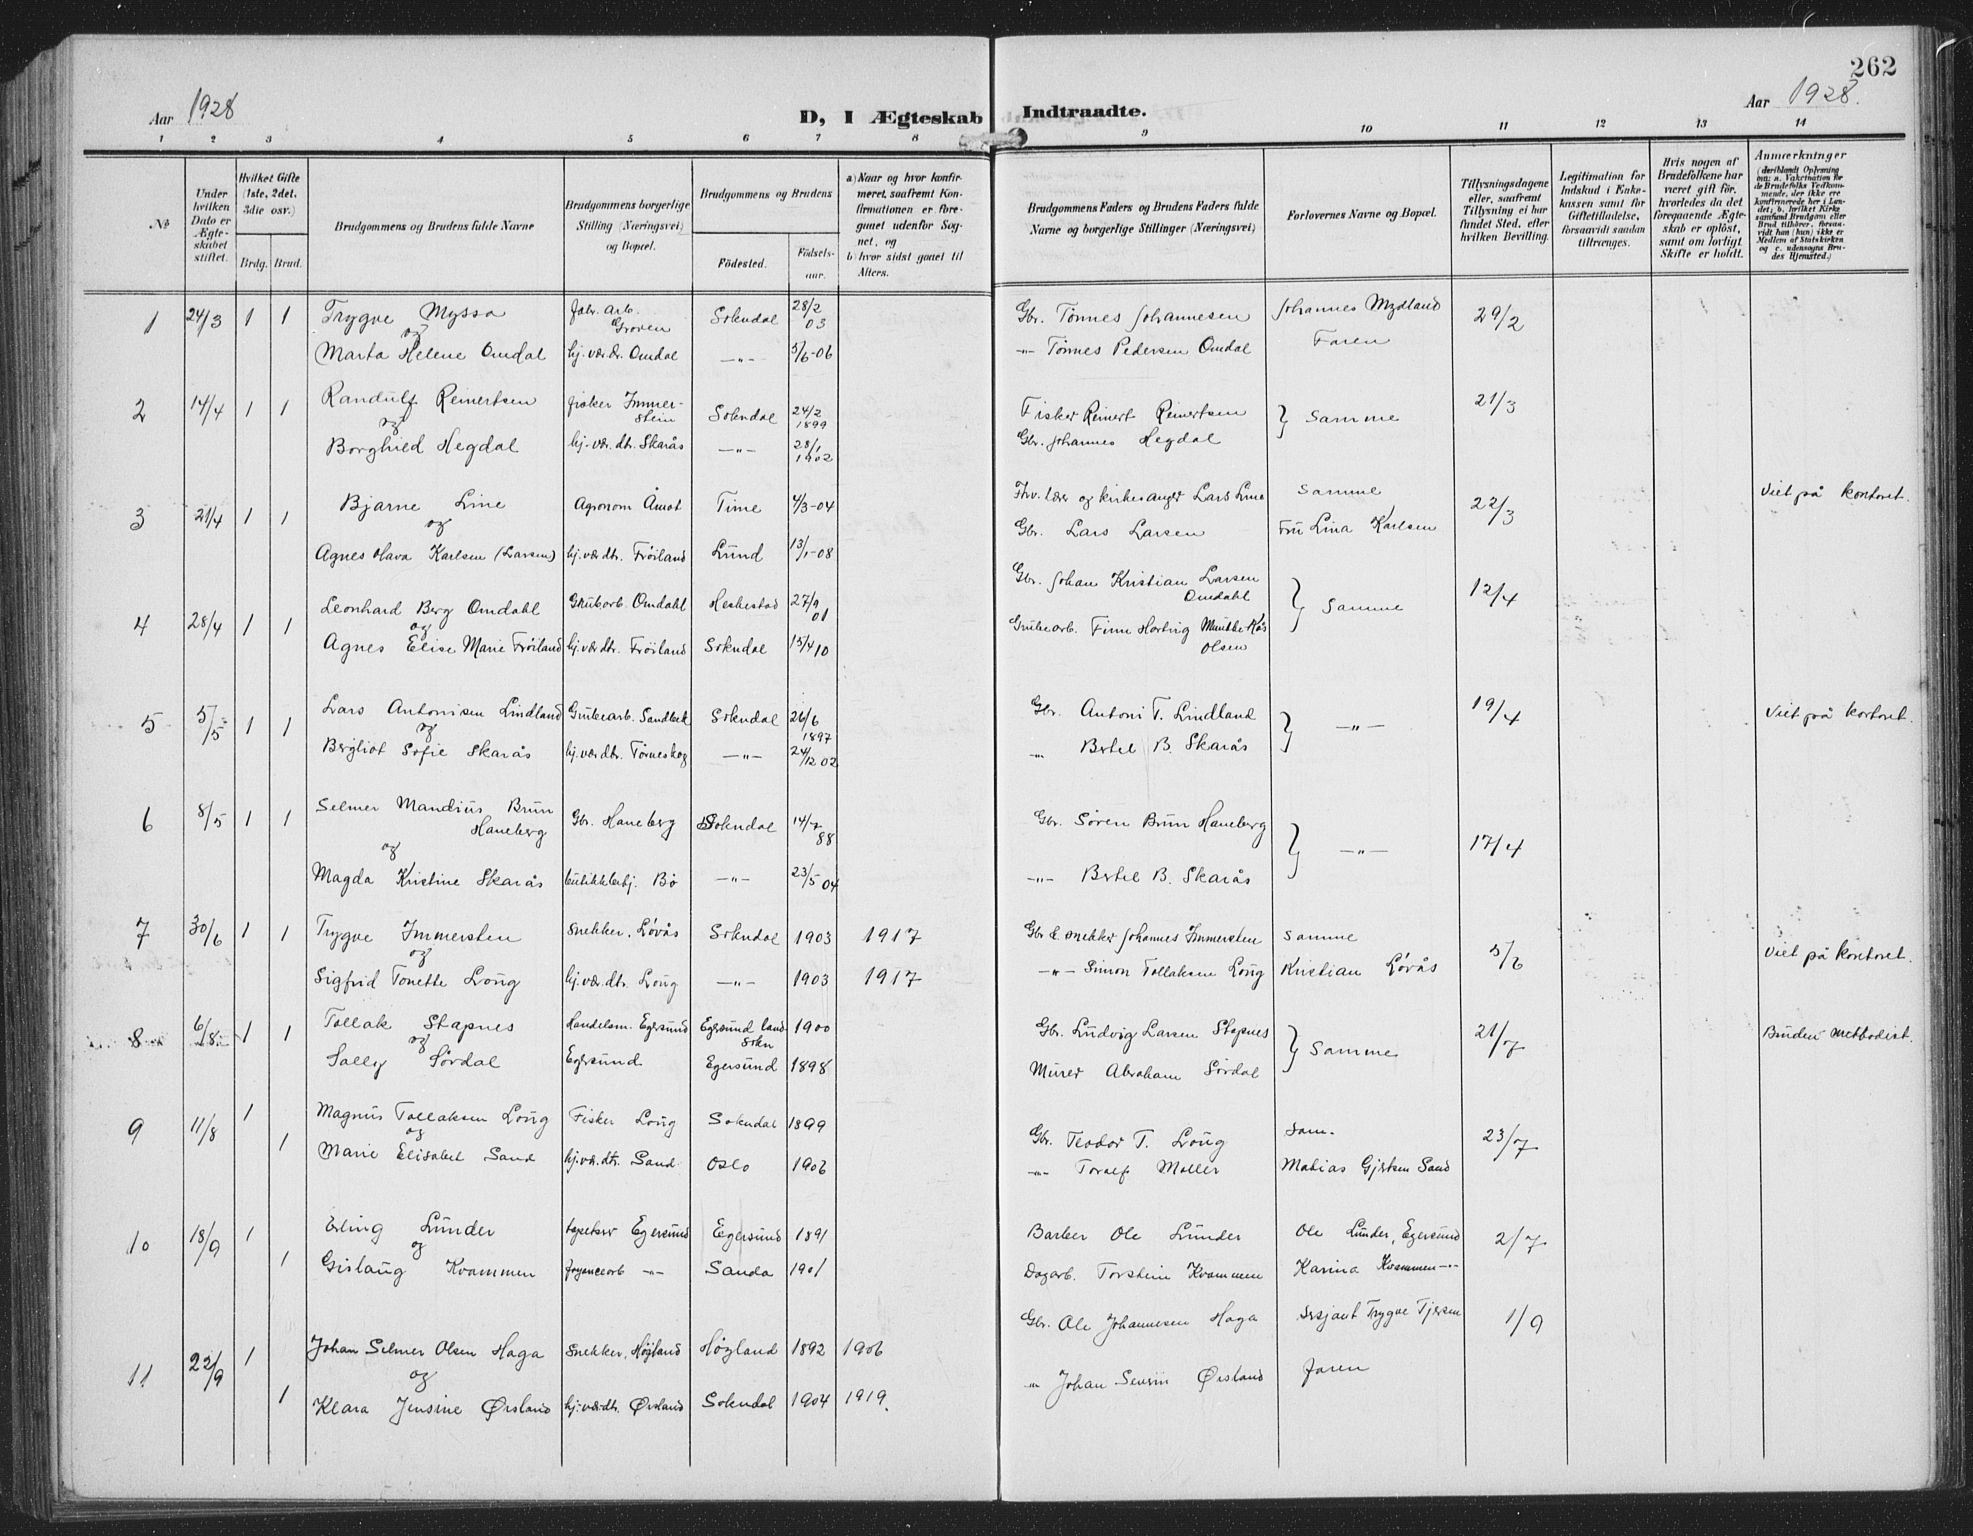 262
Aar 1928
D, I Ægteskab Indtraadte.
Aar 1928.
1 2 3 4 5 6 7 8 9 10 11 12 13 14
No
Under hvilken Dato er Ægteskabet stiftet.
Hvilket Gifte (1ste, 2det, 3die osv.)
Brdg. Brud.
Brudgommens og Brudens fulde Navne
Brudgommens borgerlige Stilling (Næringsvei) og Bopæl.
Brudgommens og Brudens
Fødested.
Fødselsaar.
a) Naar og hvor konfirmeret, saafremt Konfirmationen er foregaaet udenfor Sognet, og
b) hvor sidst gaaet til Alters.
Brudgommens Faders og Brudens Faders fulde Navne og borgerlige Stillinger (Næringsvei)
Forlovernes Navne og Bopæl.
Tillysningsdagene eller, saafremt Tillysning ei har fundet Sted, efter hvilken Bevilling.
Legitimation for Indskud i Enkekassen samt for Giftetilladelse, forsaavidt saadan tiltrænges.
Hvis nogen af Brudefolkene har været gift før, hvorledes da det foregaaende Ægteskab er opløst, samt om lovligt Skifte er holdt.
Anmærkninger (deriblandt Oplysning om: a. Vakcination for de Brudefolks Vedkommende, der ikke ere konfirmerede her i Landet; b. hvilket Kirkesamfund Brudgom eller Brud tilhører, forsaavidt han (hun) ikke er Medlem af Statskirken og c. udensogns Brudes Hjemsted.)
1 24/3 1 1 Trygve Myssa Fabr. arb. Groven Sokndal 28/2 03 Gbr. Tønnes Johannesen Johannes Mydland 29/2
og
Marta Helene Omdal hj. vær. dr. Omdal —"— 5/6-06 -"- Tønnes Pedersen Omdal Faren
2 14/4 1 1 Randulf Reinertsen fisker Immerstein Sokndal 24/2 1899 Fisker Reinert Reinertsen } Samme 21/3
og
Borghild Hegdal hj. vær. dtr. Skarås —"— 28/1 1902 Gbr. Johannes Hegdal
3 21/4 1 1 Bjarne Line Agronom Åmot Time 4/3-04 Fhv. lærer og kirkesanger Lars Line Samme 22/3 Viet på kontoret.
og
Agnes Olava Karlsen (Larsen) hj. vær dtr. Frøiland Lund 13/1-08 Gbr. Lars Larsen Fru Lina Karlsen
4 28/4 1 1 Leonhard Berg Omdahl Grubarb. Omdahl Heskestad 27/9 01 Gbr. Johan Kristian Larsen Omdahl } Samme 12/4
og
Agnes Elise Marie Frøiland hj. vær dtr. Frøiland Sokndal 15/4 10 Grubearb. Finn Hartvig Olsen
5 5/5 1 1 Lars Antonisen Lindland Grubearb. Sandbekk Sokndal 26/6 1897 Gbr. Antoni T. Lindland } —"— 19/4 Viet på kontoret.
og
Bergliot Sofie Skarås hj. vær dtr. Tørneskog —"— 24/12 02 " Bertel B. Skarås
6 8/5 1 1 Selmer Mandius Brun Haneberg Gbr. Haneberg Sokndal 14/7 88 Gbr. Søren Brun Haneberg } —"— 17/4
og
Magda Kristine Skarås butikkbetj. Bø —"— 23/5 04 -"- Bertel B. Skarås
7 30/6 1 1 Trygve Immerstein Snekker. Løvås Sokndal 1903 1917 Gbr. & snekker Johannes Immerstein Samme 5/6 Viet på kontoret.
og
Sigfrid Tonette Loug hj. vær. dtr. Loug —"— 1903 1917 -"- Simon Tollaksen Loug Kristian Løvås
8 6/8 1 1 Tollak Stapnes Handelsm. Egersund Egersund landsokn 1900 Gbr. Ludvig Larsen Stapnes } Samme 21/7 Bruden methodist.
og
Sally Sørdal Egersund Egersund 1898 Murer Abraham Sørdal
9 11/8 1 Magnus Tollaksen Loug Fisker Loug Sokndal 1899 Gbr. Teodor T. Loug Sam. 23/7
og
1 Marie Elisabet Sand hj. vær. dtr. Sand Oslo 1906 -"- Toralf Møller Matias Gjertsen Sand
10 18/9 1 Erling Lunder tapetser Egersund Egersund 1891 Barber Ole Lunder Ole Lunder, Egersund 2/7
og
1 Gislaug Kvammen fayancearb -"- Sanda 1901 Dagarb. Torstein Kvammen Karina Kvammen -"-
11. 22/9 1 Johan Selmer Olsen Haga Snekker, Høgland Høgland 1892 1906 Gbr. Ole Johannesen Haga Sersjant Trygve Tjersen 1/9
og
1 Klara Jensine Ørsland hj. vær dtr. Ørsland Sokndal 1904 1919. " Johan Severin Ørsland Faren